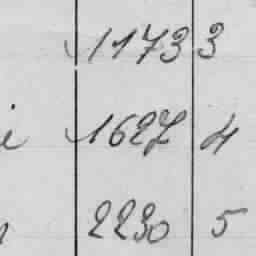 11733
1627 4
2230 5